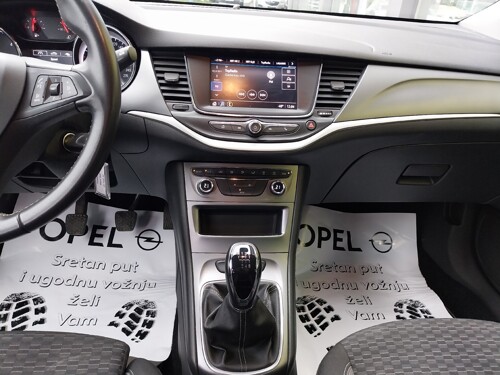 OPEL
Sretan put
i ugodnu vožnju
želi
Vam
OPEL
Sretan put
i ugodnu vožnju
želi
Vam